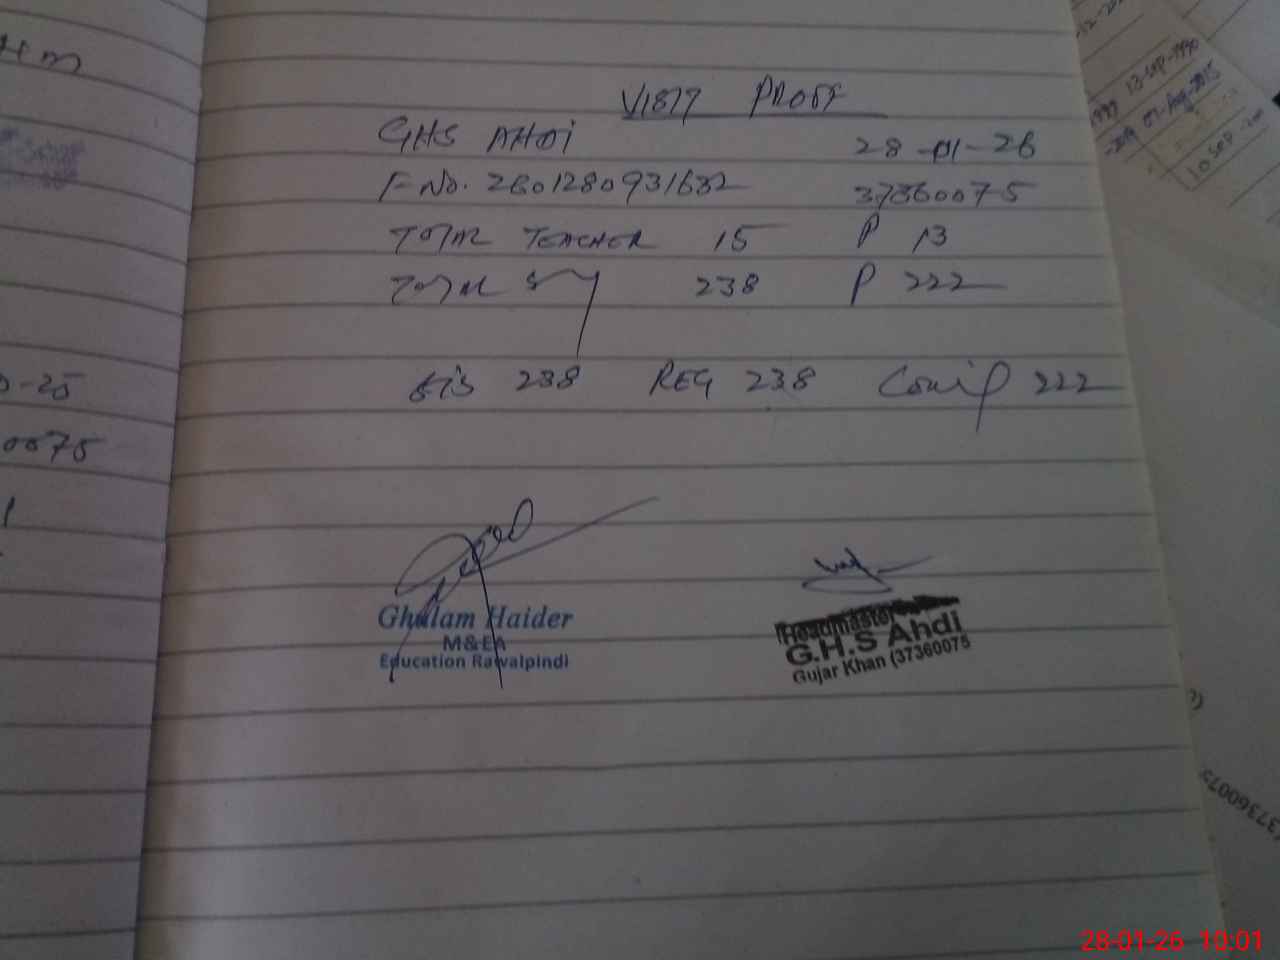 VISIT PROFF
GHS AHDI 28-01-26
F-No. 2601280931682 37360075
TOTAL TEACHER 15 P 13
TOTAL 238 P 222
SIS 238 REG 238 222
Ghulam Haider
M&EA
Education Rawalpindi
Headmaster
G.H.S Ahdi
Gujar Khan (37360075
-25
0075
13-Sep-1990
07-Aug-2015
10 Sep
37360075
28-01-26 10:01